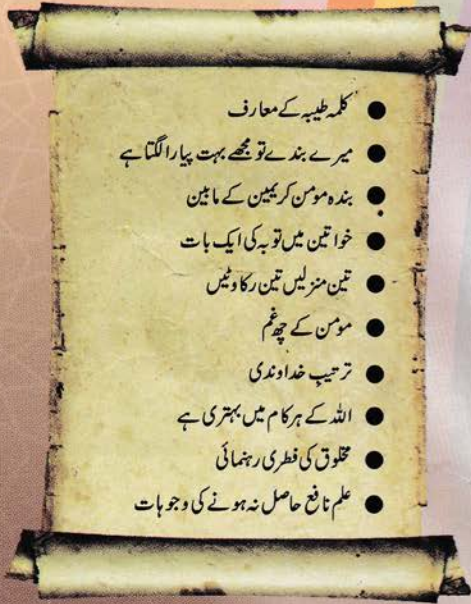 ● کلمہ طیبہ کے معارف
● میرے بندے تو مجھے بہت پیارا لگتا ہے
● بندہ مومن کریمین کے مابین
● خواتین میں توبہ کی ایک بات
● تین منزلیں تین رکاوٹیں
● مومن کے چھ غم
● ترحیب خداوندی
● اللہ کے ہر کام میں بہتری ہے
● مخلوق کی فطری رہنمائی
● علم نافع حاصل نہ ہونے کی وجوہات